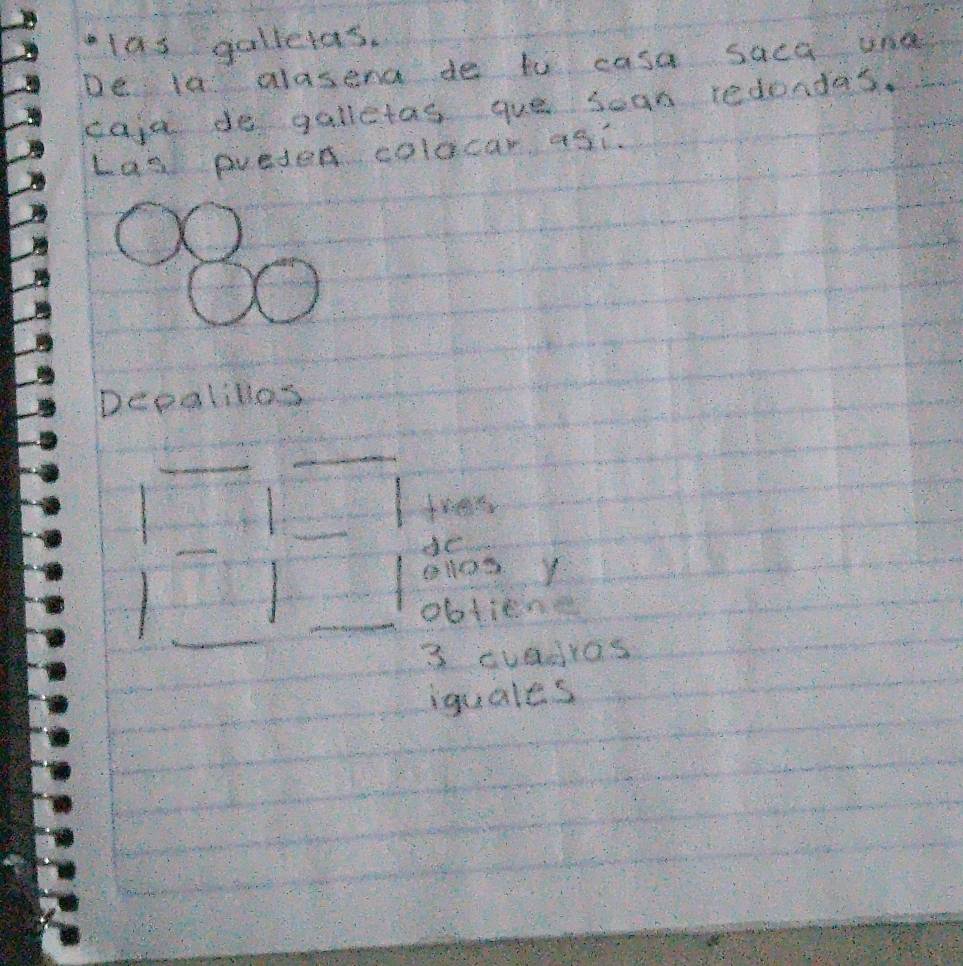 •las galletas.
De la alasena de tu casa saca una
caja de galletas que sean redondas.
Las pueden colocar así.
Depalillos
tres
de
ellos y
obtiene
3 cuadras
iguales